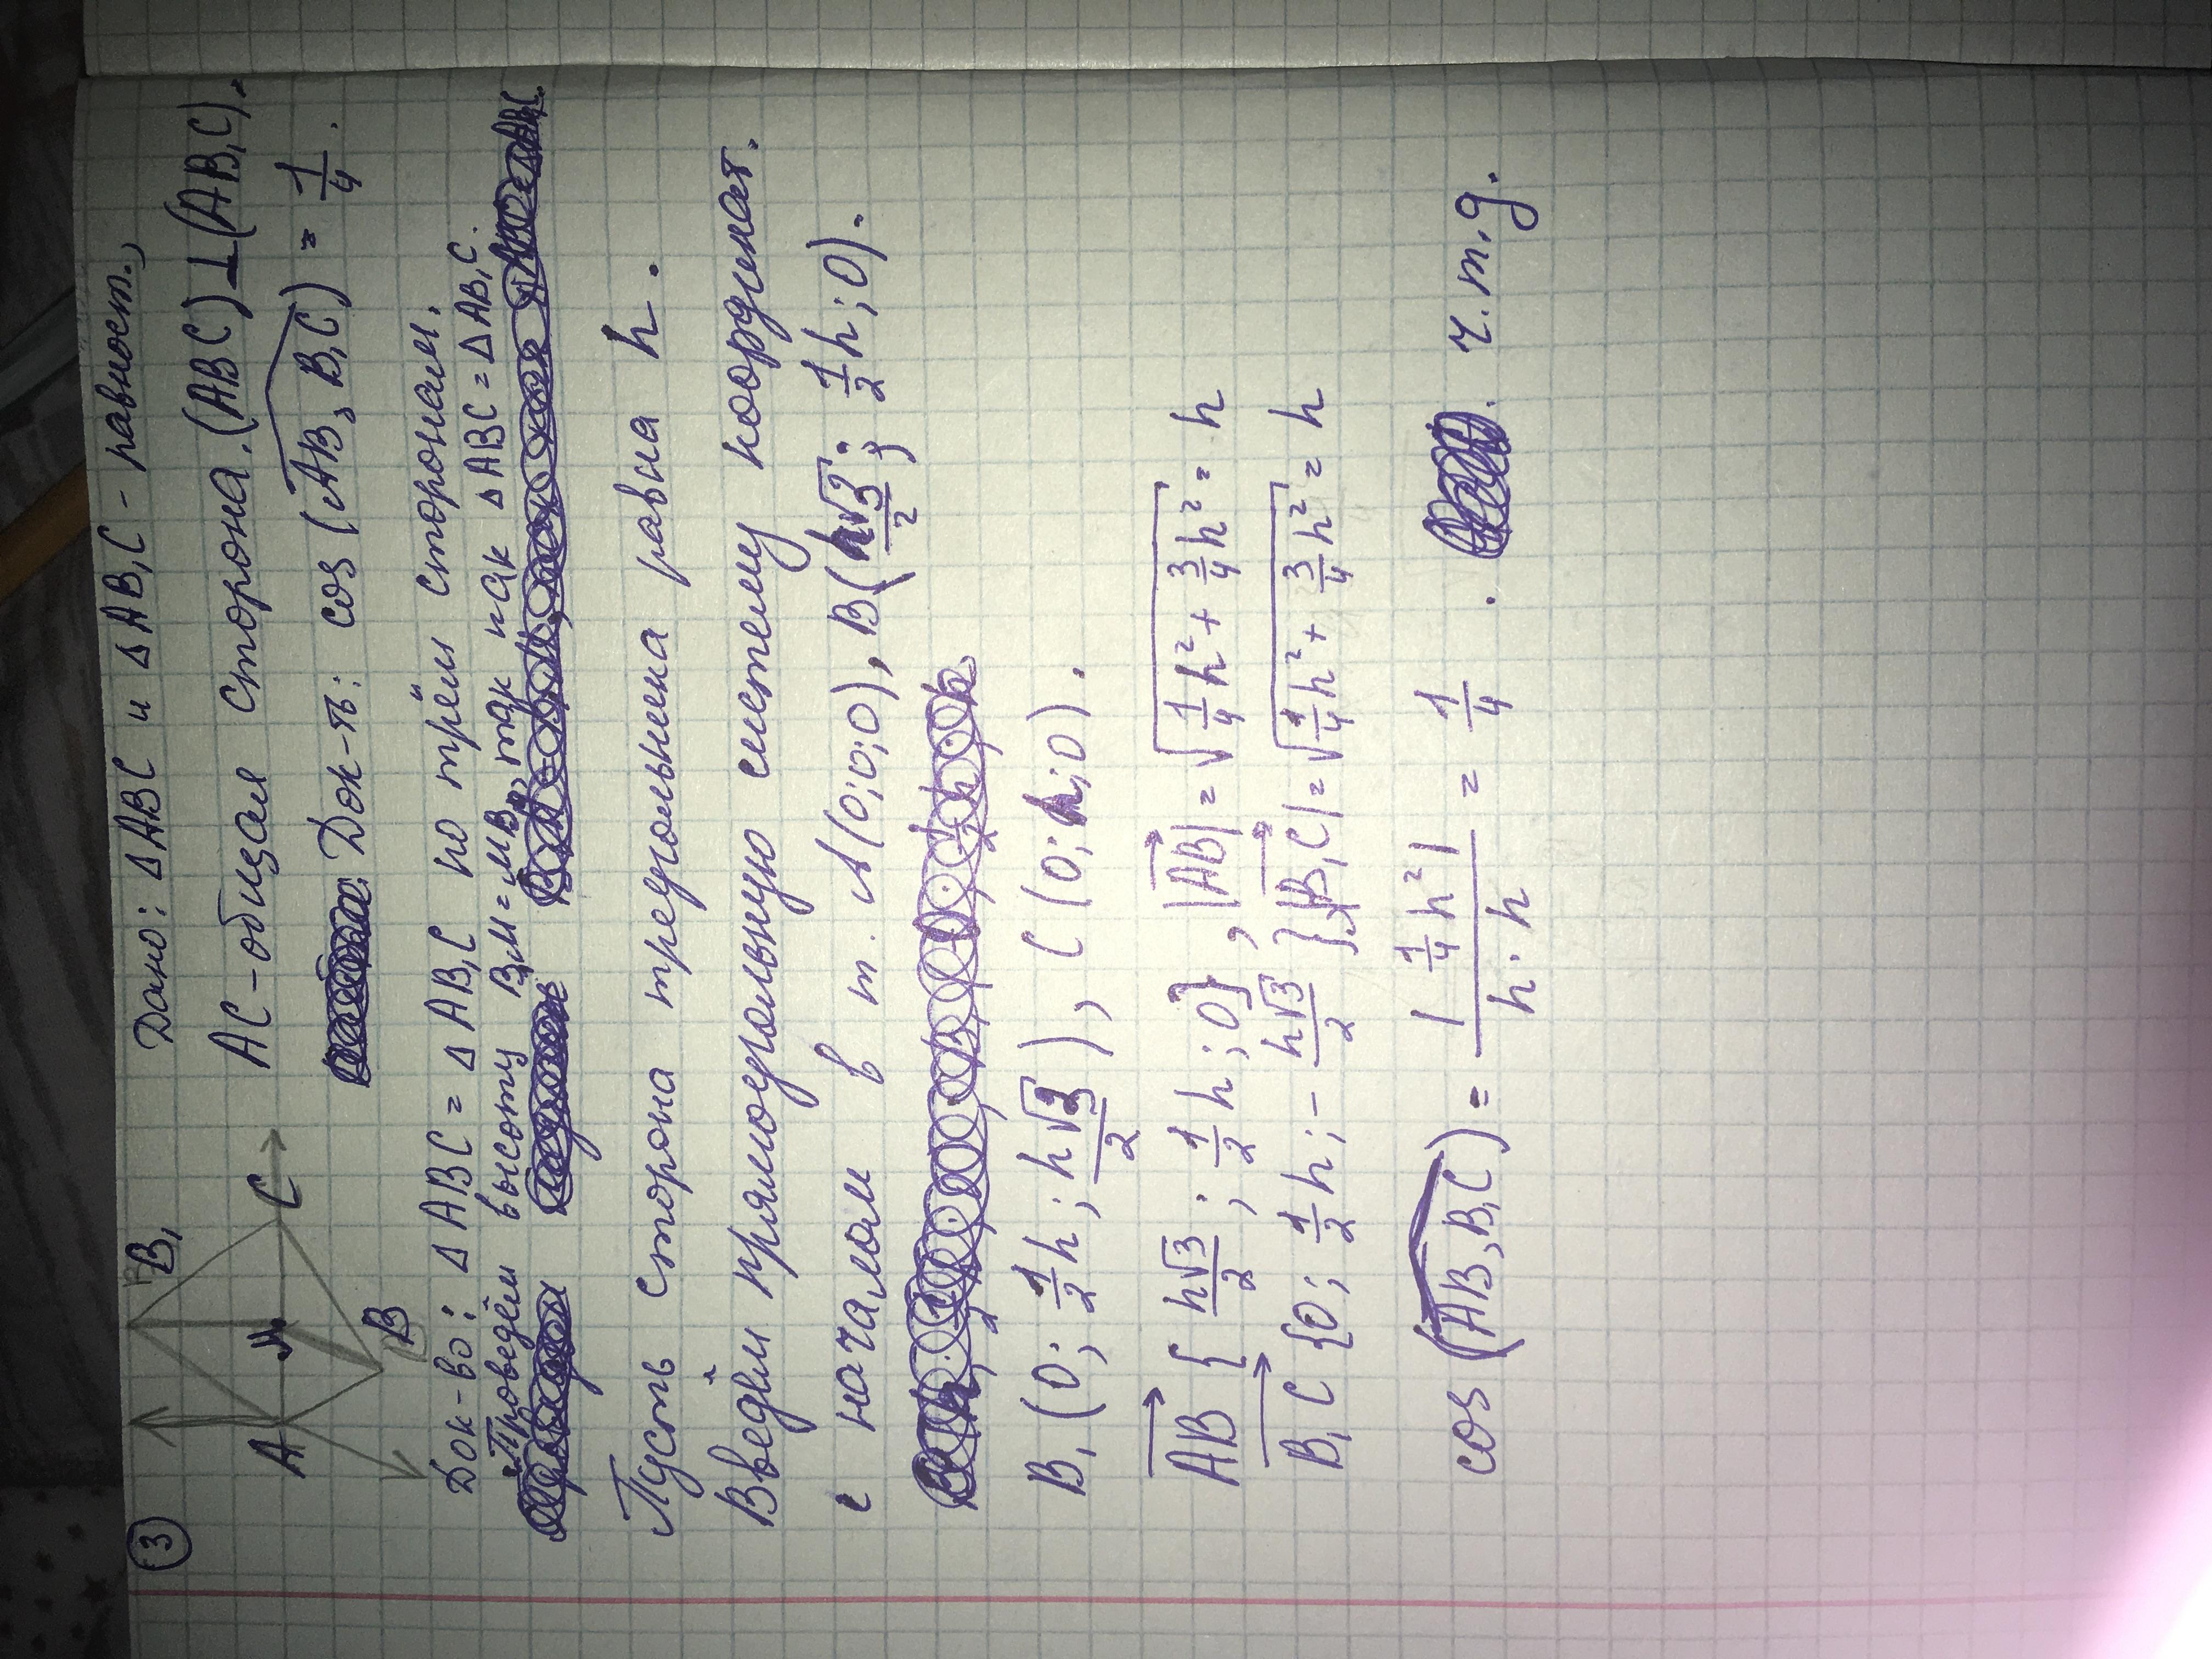 ③
B₁
A
M
C
B
Дано: △ABC и △AB₁C - равност.,
AC - общая сторона. (ABC)⊥(AB₁C).
Док-ть: cos(AB, B₁C) = 1/4.
Док-во: △ABC = △AB₁C по трём сторонам.
Проведём высоту B₁M = MB, так как △ABC = △AB₁C.
Пусть сторона треугольника равна h.
Введём прямоугольную систему координат
с началом в т. A(0;0;0), B(h√3/2; 1/2h; 0).
B₁(0; 1/2h; h√3/2), C(0; h; 0).
AB {h√3/2; 1/2h; 0}, |AB| = √(1/4h² + 3/4h²) = h
B₁C {0; 1/2h; -h√3/2}, |B₁C| = √(1/4h² + 3/4h²) = h
cos(AB, B₁C) = |1/4h²|/(h·h) = 1/4. ч.т.д.